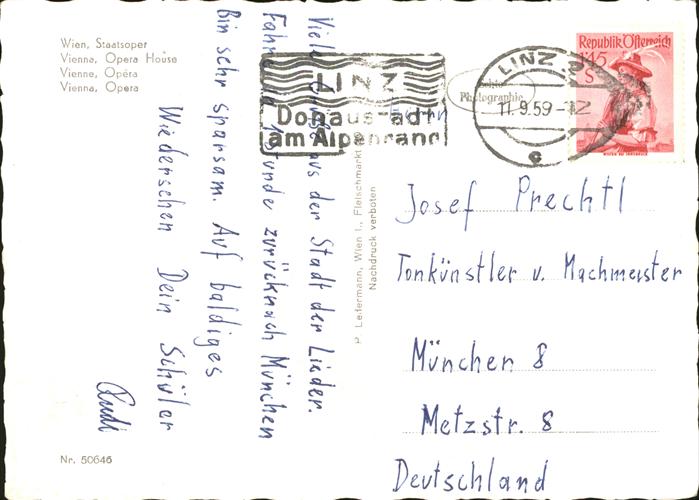 Wien, Staatsoper
Vienna, Opera House
Vienne, Opéra
Vienna, Opera
Viele Grüße aus der Stadt der Lieder.
Fahre in 1 Stunde zurück nach München
Bin sehr sparsam. Auf baldiges
Wiedersehen Dein Schüler
Rudi
Nr. 50646
P. Ledermann, Wien I., Fleischmarkt
Nachdruck verboten
LINZ
Donaustadt
am Alpenrand
Echte
Photographie
Herrn
LINZ 2
11.9.59-12
c
Republik Österreich
1'45
S
Josef Prechtl
Tonkünstler u. Machmeister
München 8
Metzstr. 8
Deutschland